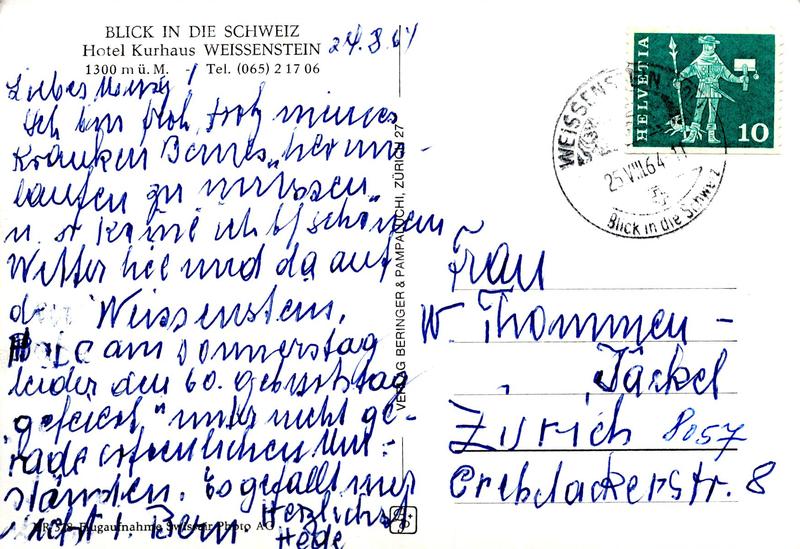 BLICK IN DIE SCHWEIZ
Hotel Kurhaus WEISSENSTEIN
1300 m ü. M. Tel. (065) 2 17 06
24.8.64
Liebes
Ich bin froh, trotz meines
kranken Beines „herum-
laufen zu müssen"
u. so komme ich b/schönem
Wetter hie und da auf
den Weissenstein.
Habe am Donnerstag
leider den 60. Geburtstag
„gefeiert" unter nicht ge-
rade erfreulichen Um-
ständen. Es gefällt mir
nicht i. Bern. Herzlichst
Hede
Flugaufnahme Swissair Photo AG
VERLAG BERINGER & PAMPALUCHI, ZÜRICH 27
HELVETIA
10
WEISSENSTEIN
25.VIII.64
Blick in die Schweiz
Frau
W. Thommen-
Jäckel
Zürich 8057
Str. 8